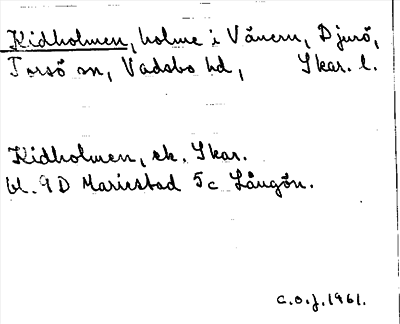 Kidholmen, holme i Vänern, Djurö,
Torsö sn, Vadsbo hd, Skar. l.
Kidholmen, ek. Skar.
bl. 9D Mariestad 5c Långön.
c.o.j. 1961.